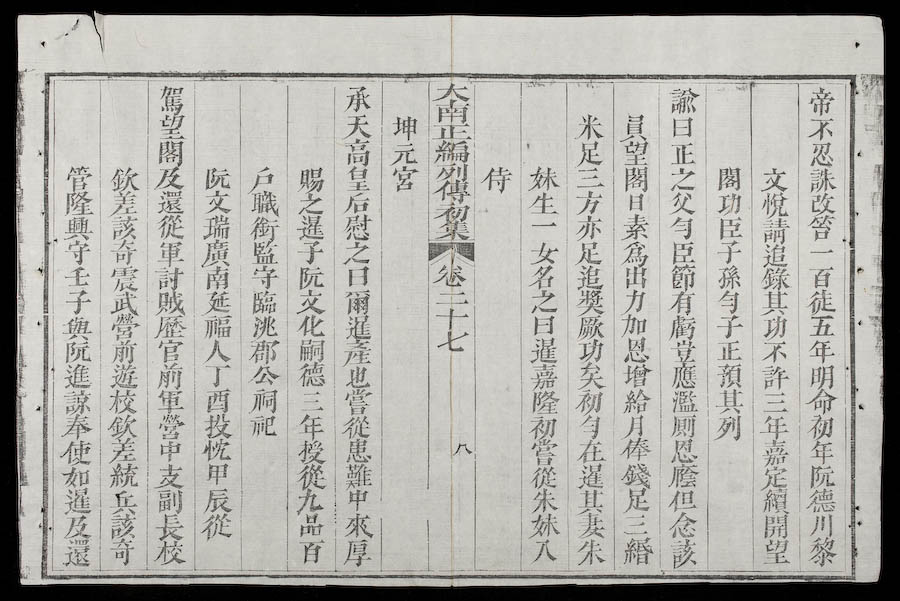 帝不忍誅改笞一百徒五年明命初年阮德川黎
文悅請追錄其功不許三年嘉定續開望
閣功臣子孫勻子正預其列
諭曰正之父勻臣節有虧豈應濫厠恩廕但念該
員望閣日素爲出力加恩增給月俸錢足三緡
米足三方亦足追奬厥功矣初勻在暹其妻朱
妹生一女名之曰暹嘉隆初嘗從朱妹入
侍
大南正編列傳初集 卷二十七 八
坤元宮
承天高皇后慰之曰爾暹產也嘗從患難中來厚
賜之暹子阮文化嗣德三年授從九品百
戶職銜監守臨洮郡公祠祀
阮文瑞廣南延福人丁酉投忱甲辰從
駕望閣及還從軍討賊歷官前軍營中支副長校
欽差該奇震武營前遊校欽差統兵該奇
管隆興守壬子與阮進諒奉使如暹及還